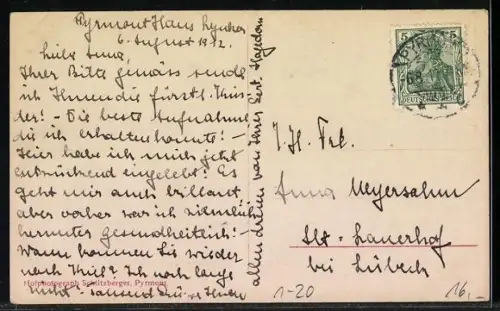 Pyrmont Haus
6. August 1912.
Liebe Anna,
Ihrer Bitte gemäss sende
ich Ihnen die fürstl. Kin-
der! – Die beste Aufnahme
die ich erhalten konnte! –
Hier habe ich mich jetzt
entzückend eingelebt! Es
geht mir auch brillant,
aber vorher war ich ziemlich
herunter gesundheitlich! –
Wann kommen Sie wieder
nach Ich noch lange
nicht! – Tausend Grüsse Ihnen
allen drinnen von Ihrer Gert. Hagedorn
Hofphotograph Schnitzberger, Pyrmont
5 5
DEUTSCHES REICH
I. H. Frl.
Anna Meyersahm
Lauerhof
bei Lübeck
1-20
16,-